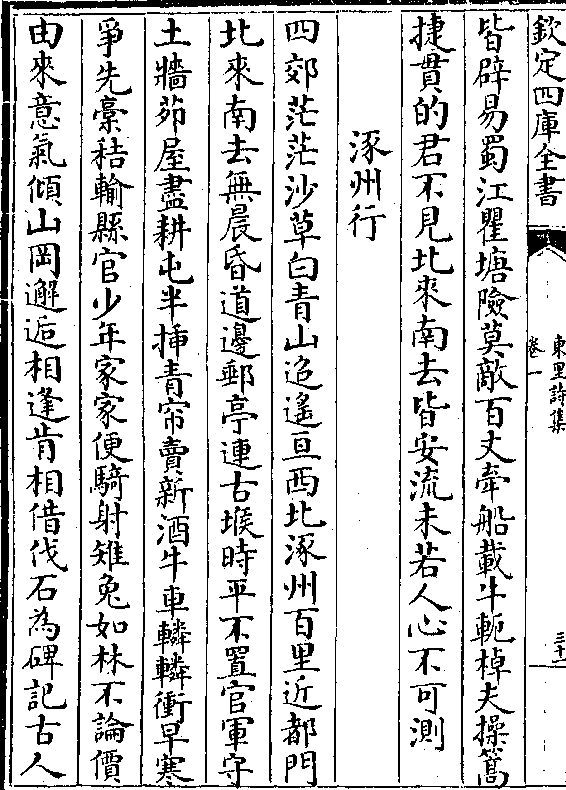 欽定四庫全書
東里詩集
卷一
三十一
皆辟易蜀江瞿塘險莫敵百丈牽船載牛軛棹夫操篙
捷貫的君不見北來南去皆安流未若人心不可測
涿州行
四郊茫茫沙草白青山迢遙亘西北涿州百里近都門
北來南去無晨昏道邊郵亭連古堠時平不置官軍守
土牆茆屋盡耕屯半揷青帘賣新酒牛車轔轔衝早寒
爭先藁秸輸縣官少年家家便騎射雉兔如林不論價
由來意氣傾山岡邂逅相逢肯相借伐石為碑記古人